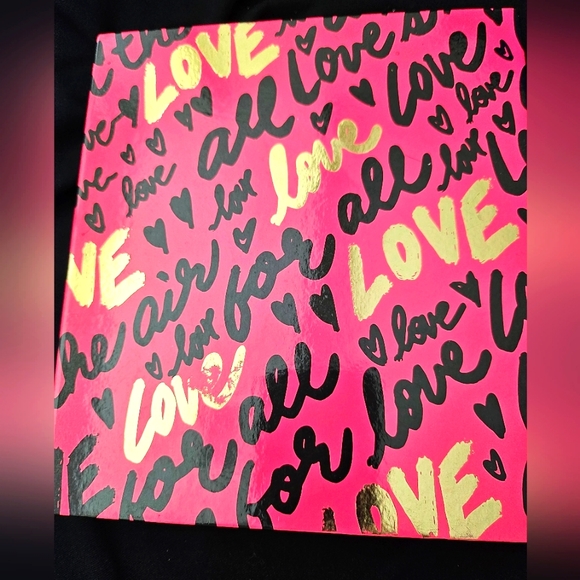 the LOVE all love
all love love
love love all love
love LOVE
the air for
love for love
love all love
for for LOVE